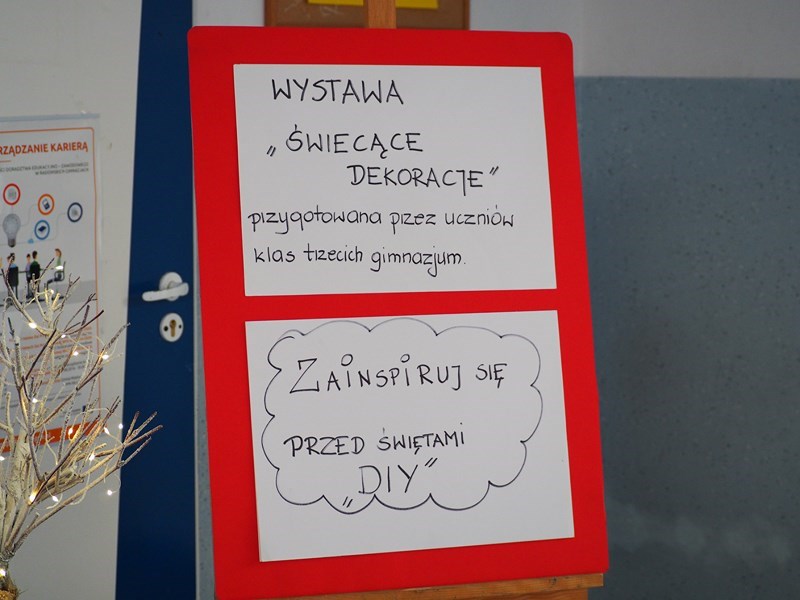 WYSTAWA
„ŚWIECĄCE
DEKORACJE"
przygotowana przez uczniów
klas trzecich gimnazjum.
ZAINSPIRUJ SIĘ
PRZED ŚWIĘTAMI
„DIY"
RZĄDZANIE KARIERĄ